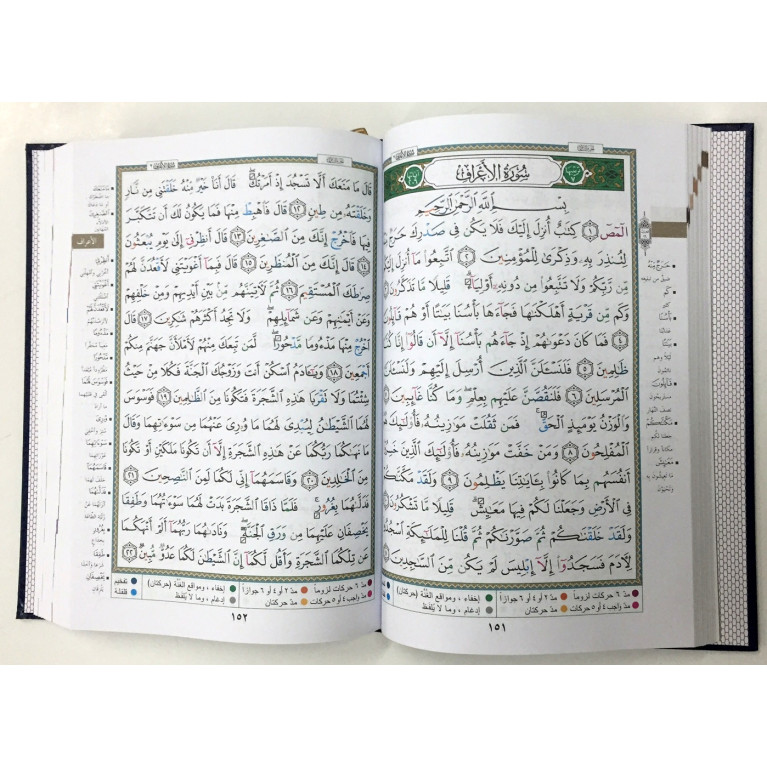 سُورَةُ الأَعْرَافِ
بِسْمِ اللَّهِ الرَّحْمَٰنِ الرَّحِيمِ
الٓمٓصٓ ١ كِتَٰبٌ أُنزِلَ إِلَيْكَ فَلَا يَكُن فِى صَدْرِكَ حَرَجٌ
لِتُنذِرَ بِهِۦ وَذِكْرَىٰ لِلْمُؤْمِنِينَ ٢ ٱتَّبِعُوا۟ مَآ أُنزِلَ
مِّن رَّبِّكُمْ وَلَا تَتَّبِعُوا۟ مِن دُونِهِۦٓ أَوْلِيَآءَ ۗ قَلِيلًا مَّا تَذَكَّرُونَ
وَكَم مِّن قَرْيَةٍ أَهْلَكْنَٰهَا فَجَآءَهَا بَأْسُنَا بَيَٰتًا أَوْ هُمْ قَآئِلُونَ
٤ فَمَا كَانَ دَعْوَىٰهُمْ إِذْ جَآءَهُم بَأْسُنَآ إِلَّآ أَن قَالُوٓا۟ إِنَّا
ظَٰلِمِينَ ٥ فَلَنَسْـَٔلَنَّ ٱلَّذِينَ أُرْسِلَ إِلَيْهِمْ وَلَنَسْـَٔلَنَّ
ٱلْمُرْسَلِينَ ٦ فَلَنَقُصَّنَّ عَلَيْهِم بِعِلْمٍ ۖ وَمَا كُنَّا غَآئِبِينَ
وَٱلْوَزْنُ يَوْمَئِذٍ ٱلْحَقُّ ۚ فَمَن ثَقُلَتْ مَوَٰزِينُهُۥ فَأُو۟لَٰٓئِكَ
ٱلْمُفْلِحُونَ ٨ وَمَنْ خَفَّتْ مَوَٰزِينُهُۥ فَأُو۟لَٰٓئِكَ ٱلَّذِينَ
أَنفُسَهُم بِمَا كَانُوا۟ بِـَٔايَٰتِنَا يَظْلِمُونَ ٩ وَلَقَدْ مَكَّنَّٰكُمْ
فِى ٱلْأَرْضِ وَجَعَلْنَا لَكُمْ فِيهَا مَعَٰيِشَ ۗ قَلِيلًا مَّا تَشْكُرُونَ
وَلَقَدْ خَلَقْنَٰكُمْ ثُمَّ صَوَّرْنَٰكُمْ ثُمَّ قُلْنَا لِلْمَلَٰٓئِكَةِ ٱسْجُدُوا۟
لِـَٔادَمَ فَسَجَدُوٓا۟ إِلَّآ إِبْلِيسَ لَمْ يَكُن مِّنَ ٱلسَّٰجِدِينَ
مدّ ٦ حركات لزوماً مدّ ٢ أو ٤ أو ٦ جوازاً إخفاء ، ومواقع الغُنَّة (حركتان) تفخيم
مدّ واجب ٤ أو ٥ حركات مدّ حركتان إدغام ، وما لا يُلفَظ قلقلة
١٥١
حَرَجٌ مِّنْهُ
كَم
بَأْسُنَا
بَيَٰتًا
قَآئِلُونَ
مَكَّنَّٰكُمْ
مَعَٰيِشَ
قَالَ مَا مَنَعَكَ أَلَّا تَسْجُدَ إِذْ أَمَرْتُكَ ۖ قَالَ أَنَا۠ خَيْرٌ مِّنْهُ خَلَقْتَنِى مِن نَّارٍ
وَخَلَقْتَهُۥ مِن طِينٍ ١٢ قَالَ فَٱهْبِطْ مِنْهَا فَمَا يَكُونُ لَكَ أَن تَتَكَبَّرَ
فِيهَا فَٱخْرُجْ إِنَّكَ مِنَ ٱلصَّٰغِرِينَ ١٣ قَالَ أَنظِرْنِىٓ إِلَىٰ يَوْمِ يُبْعَثُونَ
١٤ قَالَ إِنَّكَ مِنَ ٱلْمُنظَرِينَ ١٥ قَالَ فَبِمَآ أَغْوَيْتَنِى لَأَقْعُدَنَّ لَهُمْ
صِرَٰطَكَ ٱلْمُسْتَقِيمَ ١٦ ثُمَّ لَـَٔاتِيَنَّهُم مِّنۢ بَيْنِ أَيْدِيهِمْ وَمِنْ خَلْفِهِمْ
وَعَنْ أَيْمَٰنِهِمْ وَعَن شَمَآئِلِهِمْ ۖ وَلَا تَجِدُ أَكْثَرَهُمْ شَٰكِرِينَ ١٧ قَالَ
ٱخْرُجْ مِنْهَا مَذْءُومًا مَّدْحُورًا ۖ لَّمَن تَبِعَكَ مِنْهُمْ لَأَمْلَأَنَّ جَهَنَّمَ مِنكُمْ
أَجْمَعِينَ ١٨ وَيَٰٓـَٔادَمُ ٱسْكُنْ أَنتَ وَزَوْجُكَ ٱلْجَنَّةَ فَكُلَا مِنْ حَيْثُ
شِئْتُمَا وَلَا تَقْرَبَا هَٰذِهِ ٱلشَّجَرَةَ فَتَكُونَا مِنَ ٱلظَّٰلِمِينَ ١٩ فَوَسْوَسَ
لَهُمَا ٱلشَّيْطَٰنُ لِيُبْدِىَ لَهُمَا مَا وُۥرِىَ عَنْهُمَا مِن سَوْءَٰتِهِمَا وَقَالَ
مَا نَهَىٰكُمَا رَبُّكُمَا عَنْ هَٰذِهِ ٱلشَّجَرَةِ إِلَّآ أَن تَكُونَا مَلَكَيْنِ أَوْ تَكُونَا
مِنَ ٱلْخَٰلِدِينَ ٢٠ وَقَاسَمَهُمَآ إِنِّى لَكُمَا لَمِنَ ٱلنَّٰصِحِينَ ٢١
فَدَلَّىٰهُمَا بِغُرُورٍ ۚ فَلَمَّا ذَاقَا ٱلشَّجَرَةَ بَدَتْ لَهُمَا سَوْءَٰتُهُمَا وَطَفِقَا
يَخْصِفَانِ عَلَيْهِمَا مِن وَرَقِ ٱلْجَنَّةِ ۖ وَنَادَىٰهُمَا رَبُّهُمَآ أَلَمْ أَنْهَكُمَا
عَن تِلْكُمَا ٱلشَّجَرَةِ وَأَقُل لَّكُمَآ إِنَّ ٱلشَّيْطَٰنَ لَكُمَا عَدُوٌّ مُّبِينٌ ٢٢
مدّ ٦ حركات لزوماً مدّ ٢ أو ٤ أو ٦ جوازاً إخفاء ، ومواقع الغُنَّة (حركتان) تفخيم
مدّ واجب ٤ أو ٥ حركات مدّ حركتان إدغام ، وما لا يُلفَظ قلقلة
١٥٢
الأعراف